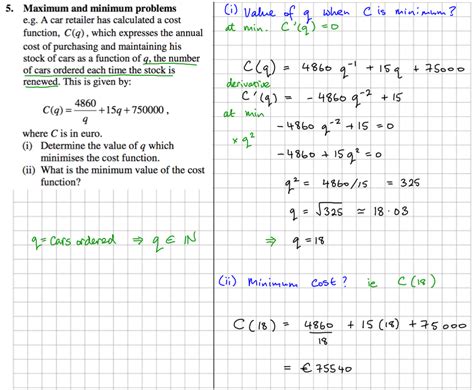 5. Maximum and minimum problems
e.g. A car retailer has calculated a cost
function, C(q), which expresses the annual
cost of purchasing and maintaining his
stock of cars as a function of q, the number
of cars ordered each time the stock is
renewed. This is given by:
C(q) = 4860/q + 15q + 750000 ,
where C is in euro.
(i) Determine the value of q which
minimises the cost function.
(ii) What is the minimum value of the cost
function?
q = cars ordered ⇒ q ∈ IN
(i) Value of q when C is minimum?
at min. C'(q) = 0
C(q) = 4860 q⁻¹ + 15q + 75000
derivative
C'(q) = - 4860 q⁻² + 15
at min
-4860 q⁻² + 15 = 0
× q²
-4860 + 15 q² = 0
q² = 4860/15 = 325
q = √325 ≃ 18.03
⇒ q = 18
(ii) Minimum cost? ie C(18)
C(18) = 4860/18 + 15(18) + 75000
= €75540